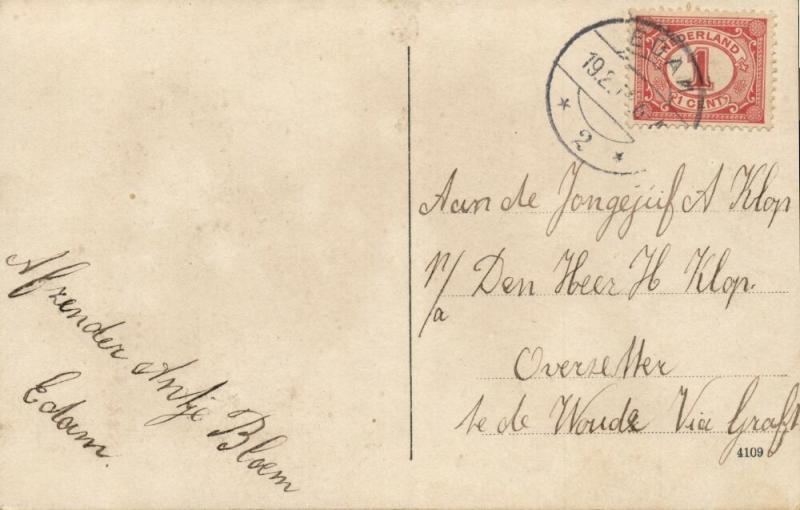 EDAM
19.2.1
2
NEDERLAND
1
CENT
Aan de Jongejuf A Klop
p/a Den Heer H Klop.
Overzetter
te de Woude Via Graft
4109
Afzender Antje Bloem
Edam.